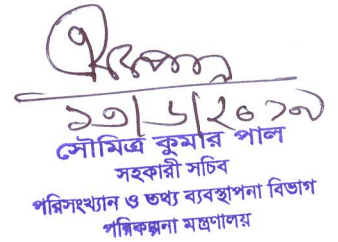 সৌমিত্র কুমার পাল
সহকারী সচিব
পরিসংখ্যান ও তথ্য ব্যবস্থাপনা বিভাগ
পরিকল্পনা মন্ত্রণালয়